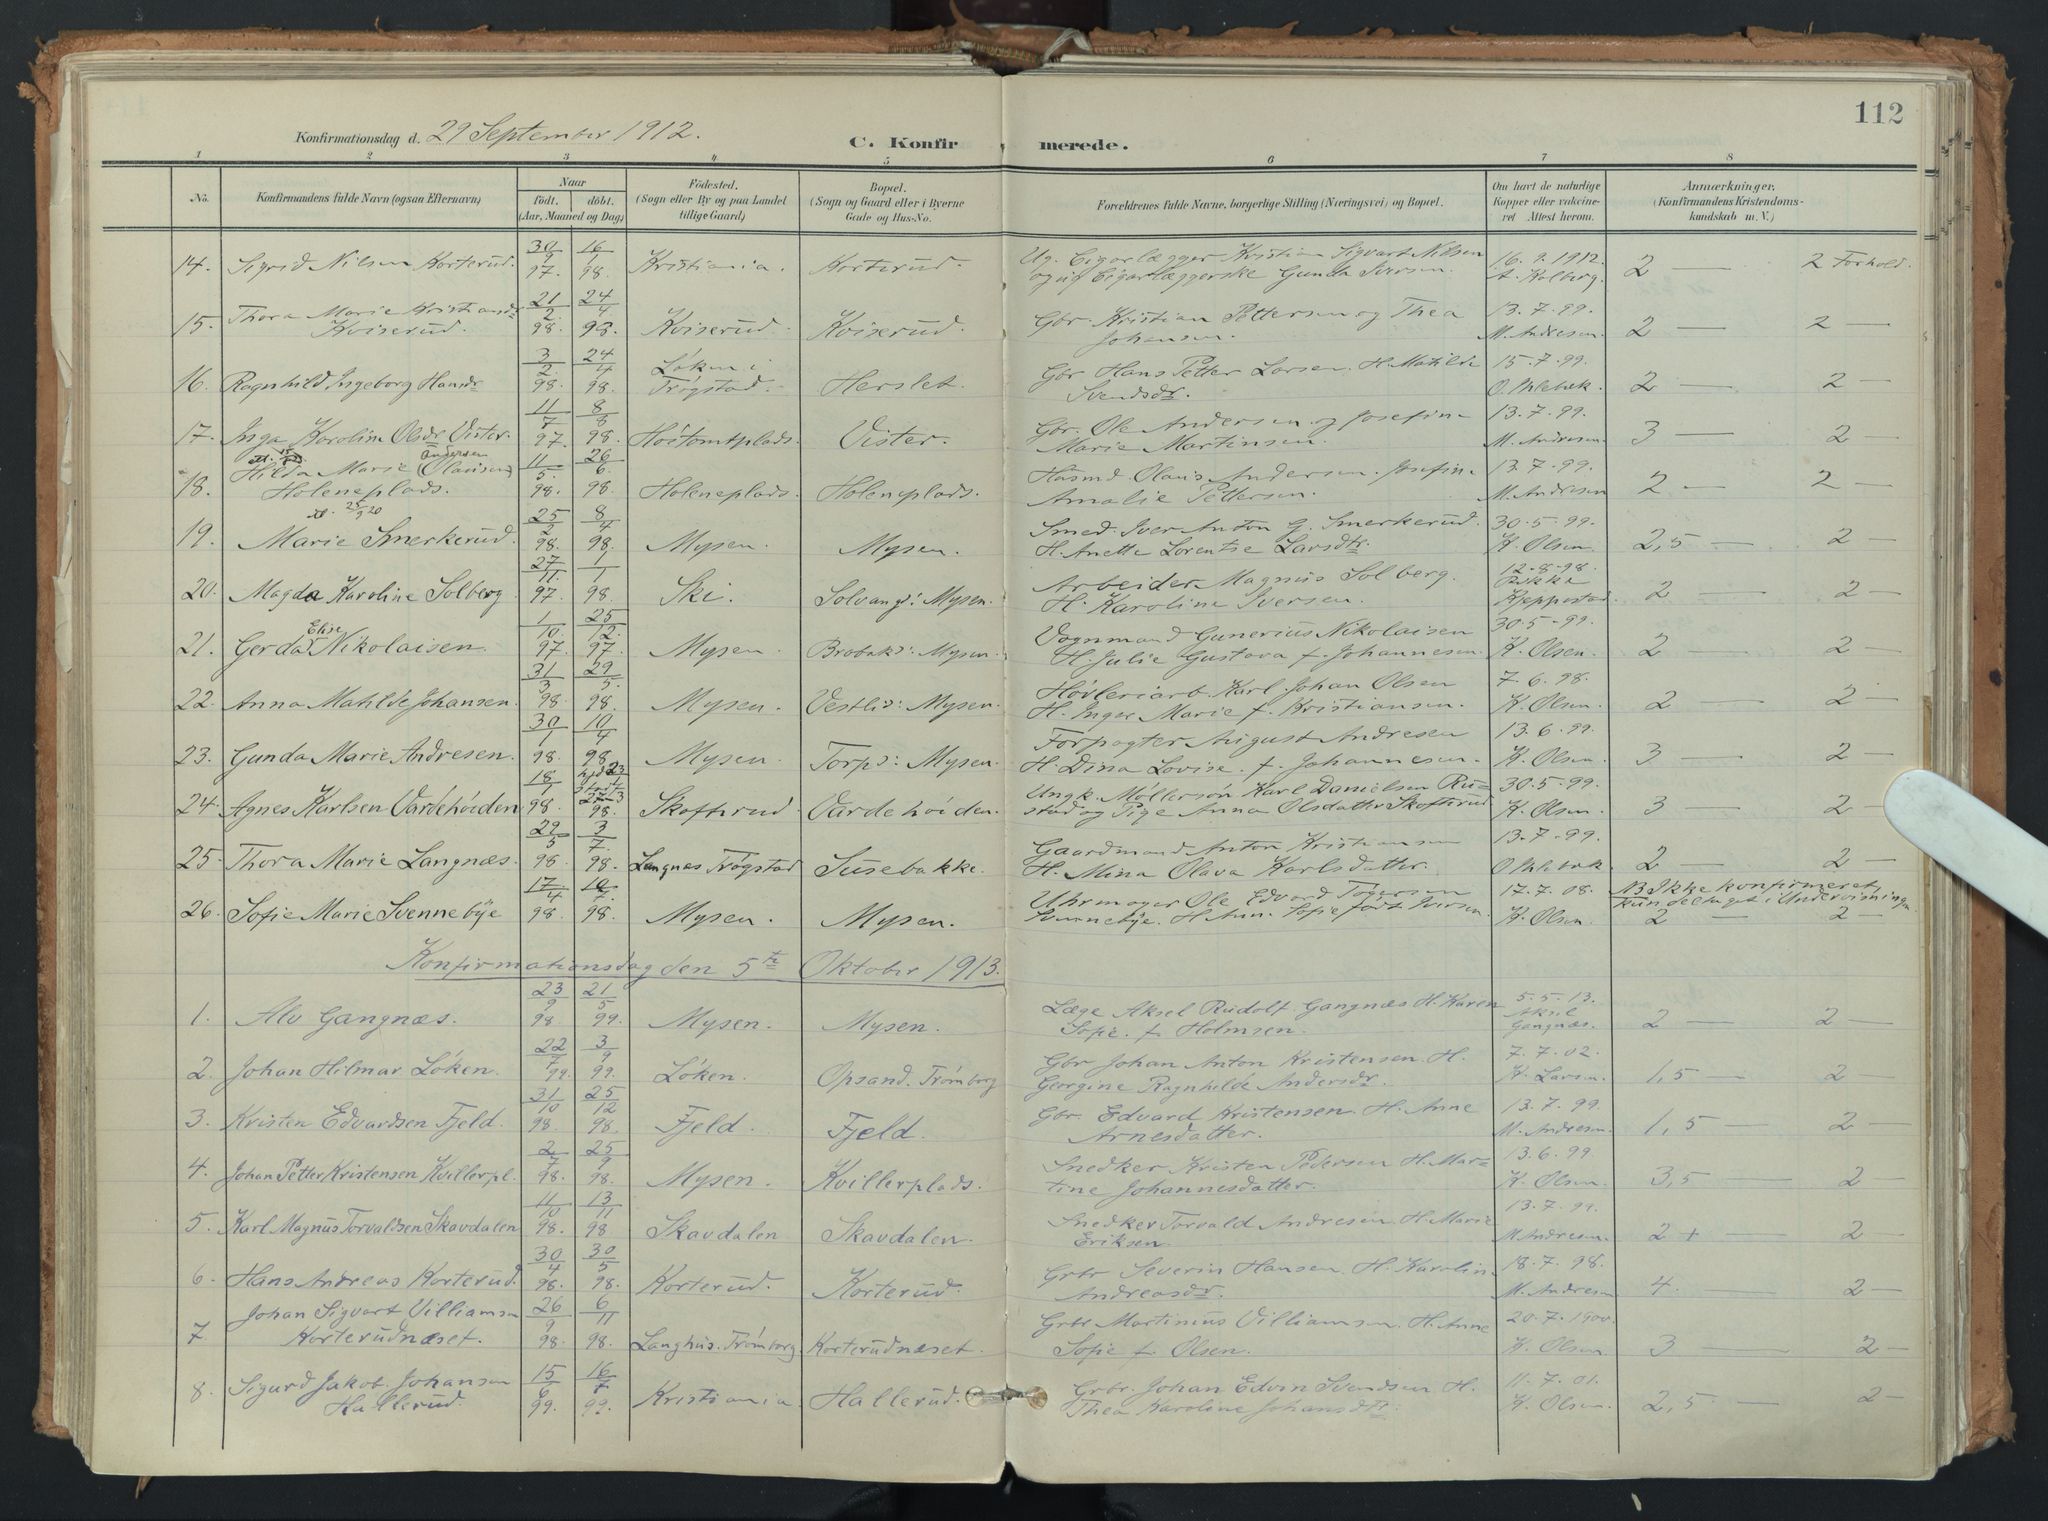 112
Konfirmationsdag d. 29 September 1912.
C. Konfirmerede.
1 2 3 4 5 6 7 8
No. Konfirmandens fulde Navn (ogsaa Efternavn) Naar födt. döbt. (Aar, Maaned og Dag) Födested. (Sogn eller By og paa Landet tillige Gaard) Bopæl. (Sogn og Gaard eller i Byerne Gade og Hus-No. Forældrenes fulde Navne, borgerlige Stilling (Næringsvei) og Bopæl. Om havt de naturlige Kopper eller vaccineret Attest herom. Anmærkninger. (Konfirmandens Kristendomskundskab m. V.)
14. Sigrid Nilsen Korterud. 30/9 97. 16/1 98. Kristiania. Korterud. Ug. Cigarlægger Kristian Sigvart Nilsen 16.9.1912.
og ug Cigarlæggerske Gunda Iversen. A. Kolberg. 2 — 2 Forhold.
15. Thora Marie Kristiansdr 21/2 98. 24/4 98. Kviserud. Kviserud. Gbr. Kristian Pettersen og Thea 13.7.99.
Kviserud. Johansen. M. Andresen. 2 — 2 —
16. Ragnhild Ingeborg Hansdr 3/2 98. 24/4 98. Løken i Trøgstad. Herslet. Gbr Hans Petter Larsen. H. Matilde 15.7.99.
Svendsdr. O. Mlebæk. 2 — 2 —
17. Inga Karoline Olsdr Vister. 11/7 97. 8/8 98. Hoitomtplads. Vister. Gbr. Ole Andersen og Josefine 13.7.99.
Marie Martinsen. M. Andresen. 3 — 2 —
18. Hilda Marie (Olausen) Andersen 11/5 98. 26/6. 98. Holeneplads. Holeneplads. Husmd. Olaus Andersen. Josefine 13.7.99.
Holeneplads. Amalie Pettersen. M. Andresen 2 — 2 —
19. Marie Smerkerud. 25/2 98. 8/4 98. Mysen. Mysen. Smed. Iver Anton G. Smerkerud. 30.5.99.
H. Anette Lorentse Larsdtr. K. Olsen. 2,5 — 2 —
20. Magda Karoline Solberg 27/11. 97. 1/1 98. Ski. Solvang: Mysen. Arbeider Magnus Solberg. 12-8-98.
H. Karoline Iversen. Rikka Kjeppestad. 2 — 2 —
21. Gerda Elise Nikolaisen. 1/10. 97. 25/12. 97. Mysen. Brobak: Mysen. Vognmand Gunerius Nikolaisen 30.5-99.
H. Julie Gustava f. Johannesen. K. Olsen. 2 — 2 —
22. Anna Matilde Johansen. 31/3 98. 29/5. 98. Mysen. Vestli: Mysen. Høvleriarb. Karl Johan Olsen 7.6.98.
H. Inger Marie f. Kristiansen. K. Olsen. 2 — 2 —
23. Gunda Marie Andresen 30/1 98. 10/4 98. Mysen. Torp: Mysen. Forpagter August Andresen 13.6.99.
H. Dina Lovise. f. Johannesen. K. Olsen. 3 — 2 —
24. Agnes Karlsen Vardehøiden 18/1 98. 98. Skofterud Vardehøiden. Ungk. Møllersøn Karl Danielsen Ru- 30.5.99.
stad og Pige Anna Olsdatter Skofterud K. Olsen. 3 — 2 —
25. Thora Marie Langnæs. 29/5 98. 3/7. 98. Langnes Trøgstad Susebakke. Gaardmand Anton Kristiansen 13.7.99.
H. Mina Olava Karlsdatter. O Mlebæk 2 — 2 —
26. Sofie Marie Svennebye 17/4 98. 10/7. 98. Mysen. Mysen. Uhrmager Ole Edvard Tøgersen 17.7.08. NB Ikke konfirmeret,
Svennebye. H Ann. Sofie født Iversen. K. Olsen. kun deltaget i Undervisningen 2 — 2 —
Konfirmationsdag den 5te Oktober 1913.
1. Alv Gangnæs. 23/9 98. 21/5 99. Mysen. Mysen. Læge Aksel Rudolf Gangnæs H. Karen 5.5.13.
Sofie. f. Holmsen. Aksel Gangnæs. 2 — 2 —
2. Johan Hilmar Løken. 22/7 99. 3/9 99. Løken. Opsand. Trømborg Gbr Johan Anton Kristensen. H. 7.7.02.
Georgine Ragnhilde Andersdr. K. Larsen. 1,5 — 2 —
3. Kristen Edvardsen Fjeld. 31/10 98. 25/12 98. Fjeld. Fjeld. Gbr. Edvard Kristensen. H. Anne 13.7.99.
Arnesdatter. M. Andresen. 1,5 — 2 —
4. Johan Petter Kristensen Kvillerpl. 2/7 98. 25/9 98. Mysen. Kvillerplads. Snedker Kristen Pedersen H. Mar- 13.6.99.
tine Johannesdatter. K. Olsen. 3,5 — 2 —
5. Karl Magnus Torvaldsen Skavdalen 11/10 98. 13/11 98 Skavdalen Skavdalen. Snedker Torvald Andresen. H. Marie 13.7.99.
Eriksen. M Andresen. 2 + — 2 —
6. Hans Andreas Korterud. 30/4 98. 30/5 98. Korterud. Korterud. Grbr Severin Hansen. H. Karoline 18.7.98.
Andreasdr. M. Andresen 4. — 2 —
7. Johan Sigvart Villiamsen 26/9 98. 6/11 98. Langhus. Trømborg. Korterudnæset. Grbr Martinius Villiamsen. H. Anne 20.7.1900.
Korterudnæset. Sofie f. Olsen. K. Olsen 3 — 2 —
8. Sigurd Jakob Johansen 15/6 99. 16/7 99. Kristiania. Hallerud. Grbr. Johan Edvin Svendsen H. 11.7.01.
Hallerud. Thea Karoline Johansdtr. K. Olsen. 2,5 — 2 —